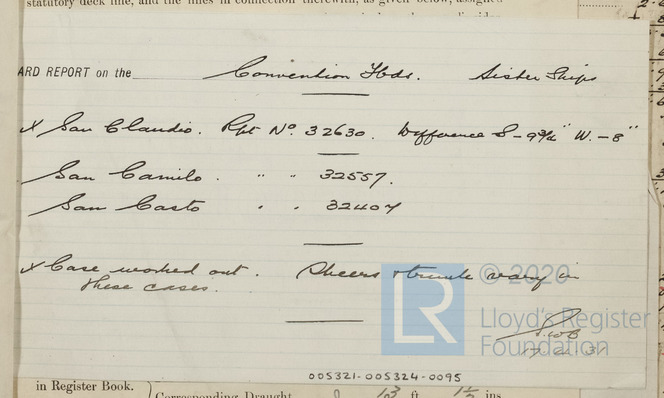 statutory deck line, and the lines in connection therewith, as given below, assigned
ARD REPORT on the Convention Fbds. Sister Ships
X San Claudio. Rpt No. 32630. Difference S - 9¾" W. - 8"
San Camilo. " " 32557.
San Casto . . 32407
X Case worked out. Sheers & trunk vary in
these cases.
© 2020
LR
Lloyd's Register
Foundation
005321-005324-0095
in Register Book.
Corresponding Draught ft ins